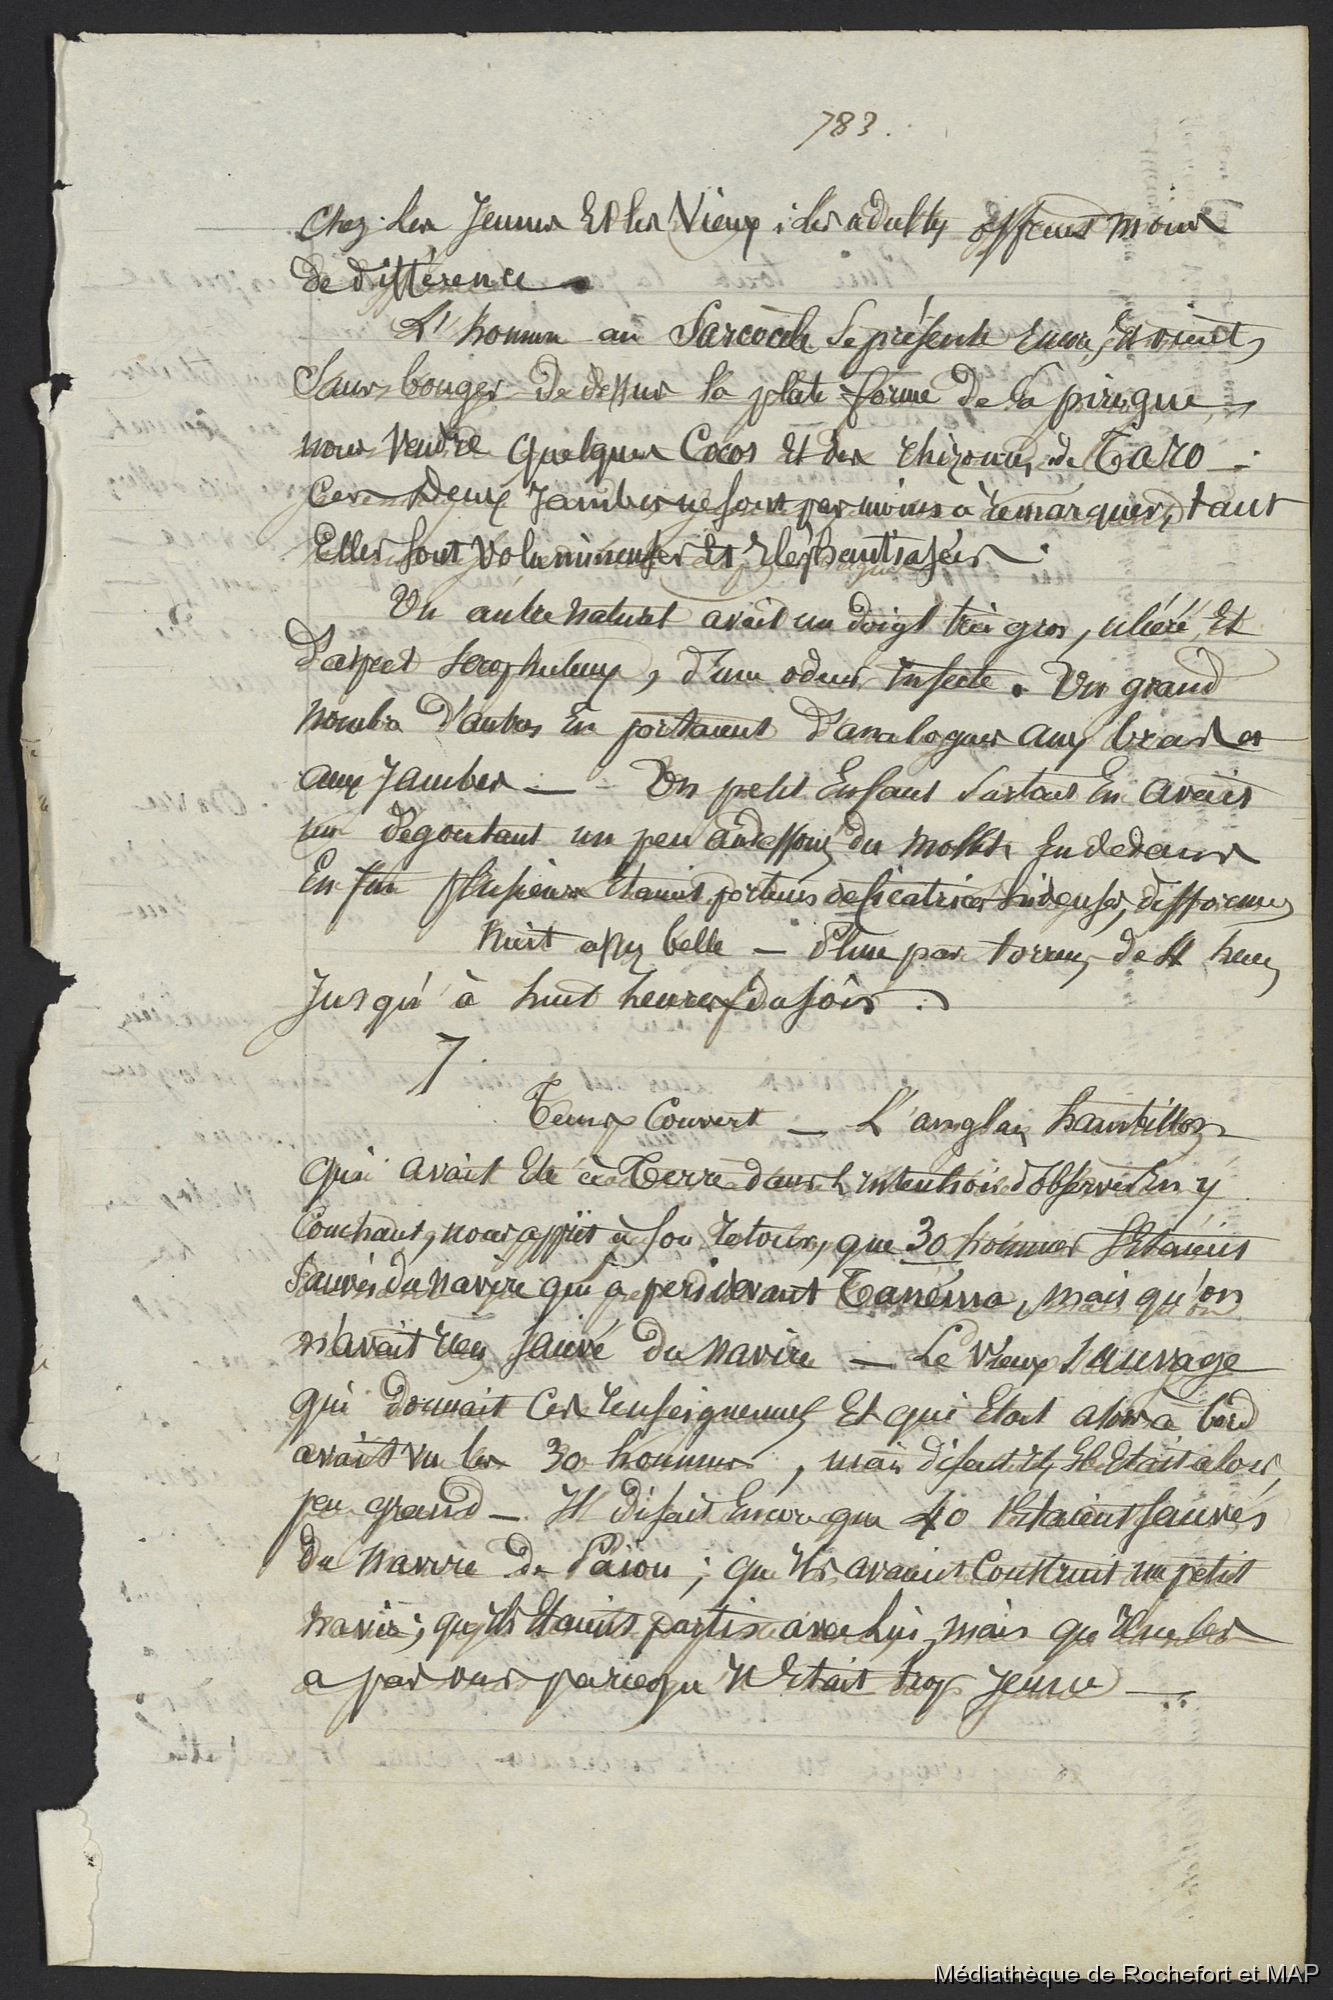 783.
Chez les Jeunes Et les Vieux ; les adultes offrent moins
de différence.
L'homme au Sarcocèle se présente Encore, Et vient,
Sans bouger de dessus la plate-forme de la pirogue,
nous vendre quelques Cocos Et des rhizomes de Taro.
Ces deux Jambes ne sont pas moins à remarquer, tant
Elles sont volumineuses Et Elephantiasées.
Un autre naturel avait un doigt très gros, ulcéré, Et
d'aspect scrophuleux, d'une odeur infecte. Un grand
nombre d'autres En portaient d'analogues aux bras et
aux Jambes — Un petit Enfant Surtout En avait
un dégoutant un peu audessous du mollet En dedans
Enfin plusieurs Etaient porteurs de Cicatrices hideuses, difformes
Nuit assez belle — Pluie par torrens de 4 heures
Jusqu'à huit heures du soir.
7.
Temps Couvert — L'anglais hambilton
qui avait Eté à Terre dans l'intention d'observer En y
Couchant, nous apprit à son retour, que 30 hommes S'étaient
Sauvés du navire qui a peri devant Tanéma, mais qu'on
n'avait rien sauvé du navire — Le vieux sauvage
qui donnait Ces renseignemens Et qui Etait alors à bord
avait vu les 30 hommes, mais disait-il, Il Etait alors
peu grand — Il disait Encore que 40 S'étaient sauvés
du navire de Païou ; qu'Ils avaient Construit un petit
navire ; qu'Ils Etaient partis avec lui, mais qu'Il ne les
a pas vus parcequ'Il Etait trop Jeune —
Médiathèque de Rochefort et MAP